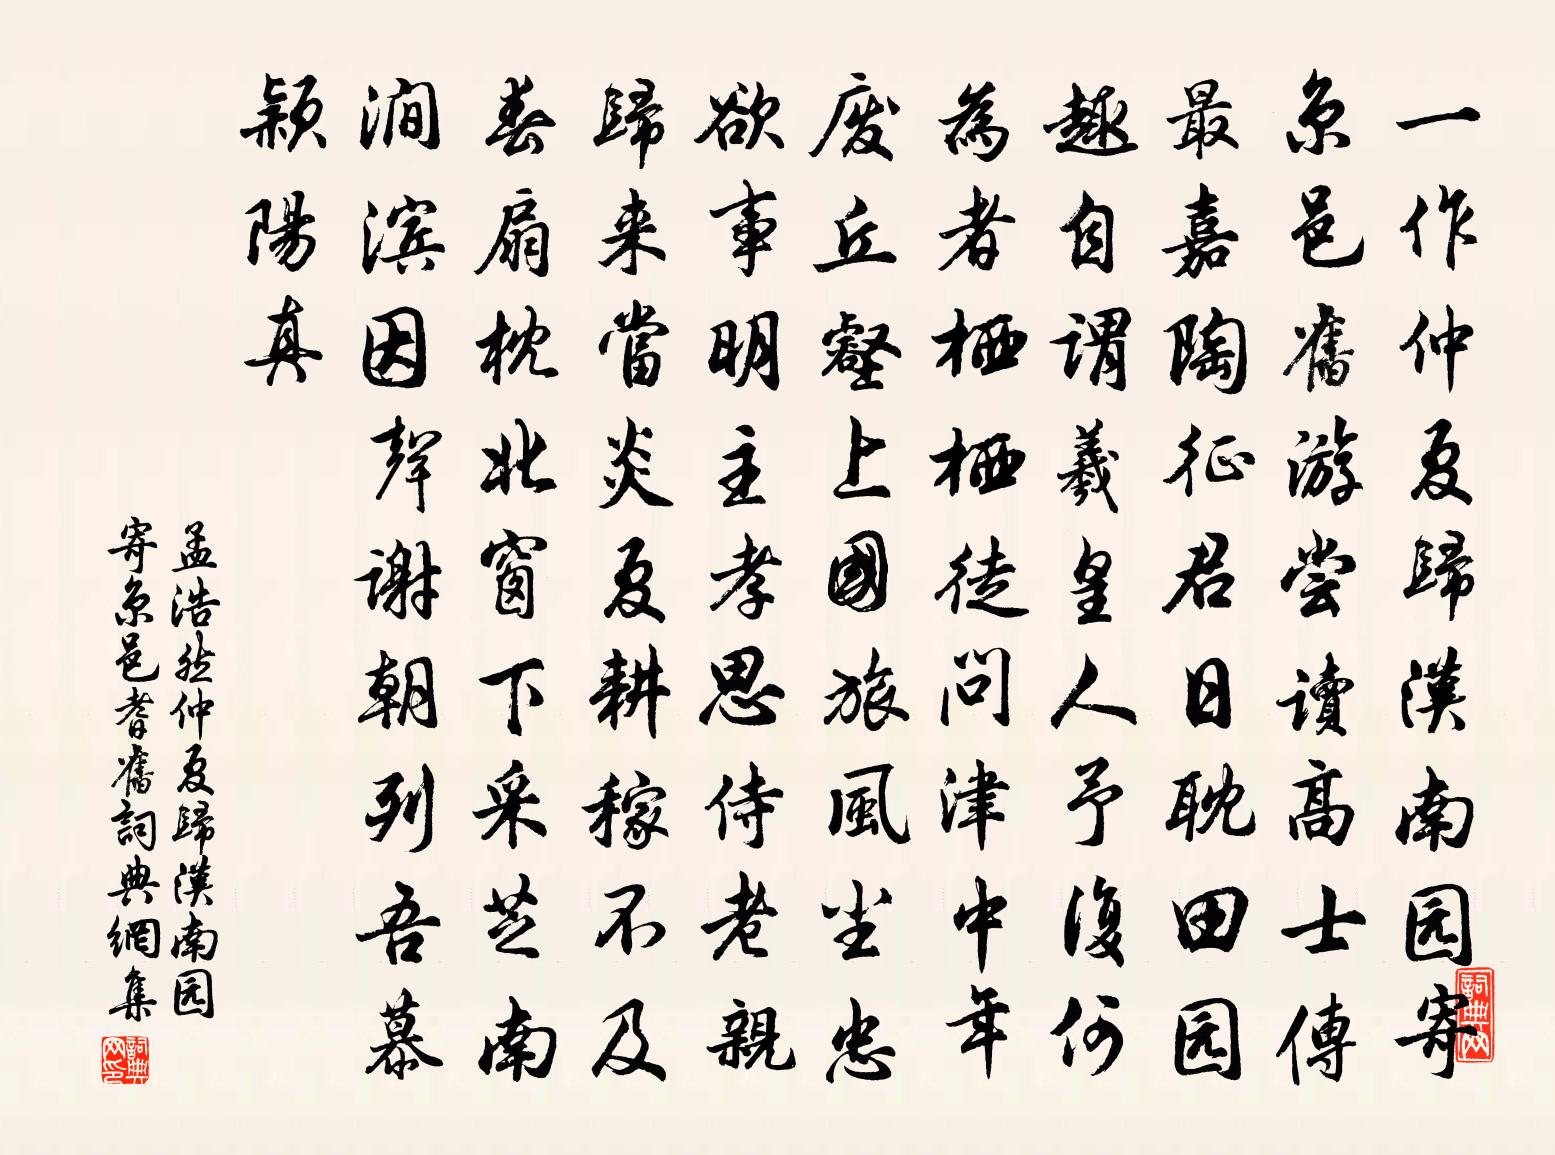 一作仲夏歸漢南园寄
京邑舊游尝讀高士傳
最嘉陶征君日耽田园
趣自謂羲皇人予復何
為者栖栖徒問津中年
废丘壑上國旅風尘忠
欲事明主孝思侍老親
歸来當炎夏耕稼不及
春扇枕北窗下采芝南
澗滨因聲謝朝列吾慕
颍陽真
孟浩然仲夏歸漢南园
寄京邑耆舊詞典網集
詞典网
詞典网印